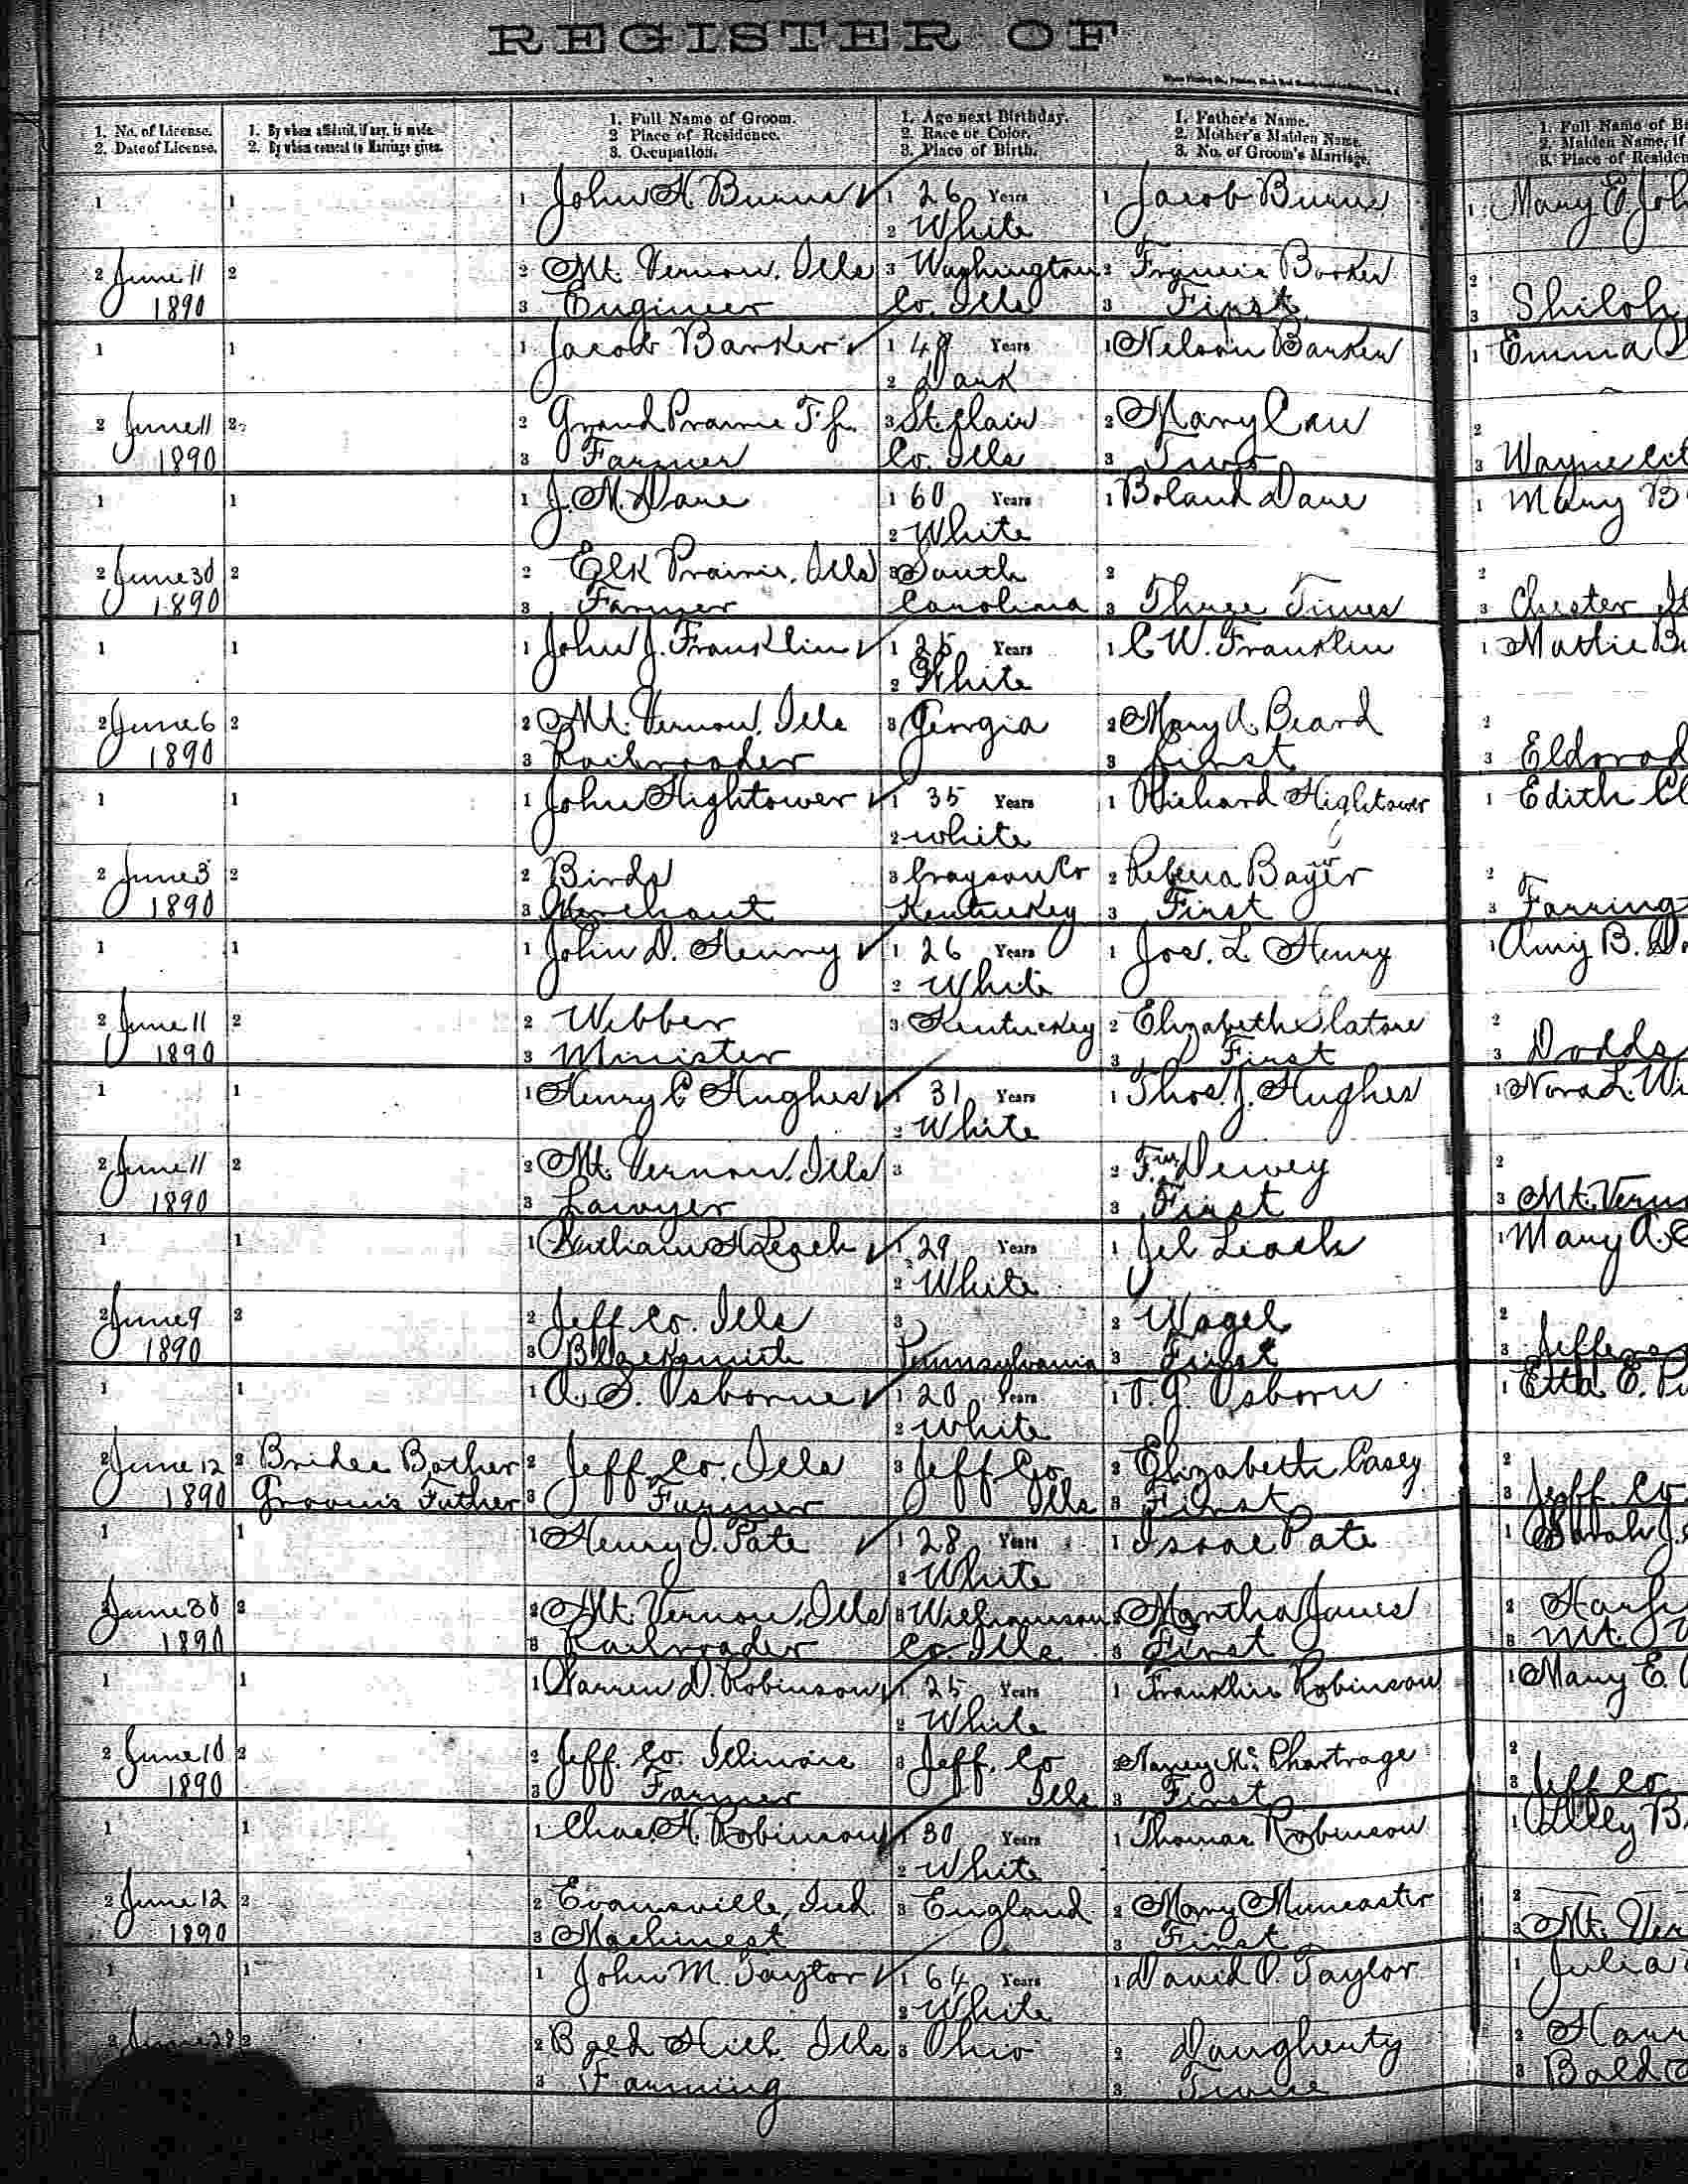 REGISTER OF
1. No. of License.
2. Date of License.
1. By whom affidavit, if any, is made.
2. By whom consent to Marriage given.
1. Full Name of Groom.
2 Place of Residence.
3. Occupation.
1. Age next Birthday.
2. Race or Color.
3. Place of Birth.
1. Father's Name.
2. Mother's Maiden Name.
3. No. of Groom's Marriage.
1. Full Name of
2. Maiden Name, if
3. Place of
1 1 1 John H Burns 1 26 Years 1 Jacob Burns 1 Mary E Joh
2 White
2 June 11 2 2 Mt. Vernon, Ills 3 Washington 2 Barker 2
1890 3 Engineer Co. Ills 3 First 3 Shiloh
1 1 1 Jacob Barker 1 Years 1 Nelson Barker 1 Emma
2 Dark
2 June 11 2 2 Grand Prairie Tp. 3 St. Clair 2 Mary 2
1890 3 Farmer Co. Ills 3 Two 3 Wayne Cit
1 1 1 J. N. Dane 1 60 Years 1 Boland Dane 1 Mary B
2 White
2 June 30 2 2 Elk Prairie, Ills 3 South 2 2
1890 3 Farmer Carolina 3 Three Times 3 Chester
1 1 1 John J. Franklin 1 25 Years 1 C W. Franklin 1 Mattie B
2 White
2 June 6 2 2 Mt. Vernon, Ills 3 Georgia 2 Mary A. Beard 2
1890 3 Railroader 3 First 3 Eldorad
1 1 1 John Hightower 1 35 Years 1 Richard Hightower 1 Edith Cl
2 White
2 June 3 2 2 Birds 3 Grayson Co 2 2
1890 3 Merchant Kentuckey 3 First 3 Farring
1 1 1 John D. Henry 1 26 Years 1 Jos. L Henry 1 Amy B.
2 White
2 June 11 2 2 Webber 3 Kentuckey 2 Elizabeth 2
1890 3 Minister 3 First 3 Dodds
1 1 1 Henry C Hughes 1 31 Years 1 Thos. J. Hughes 1 Nora L. Wi
2 White
2 June 11 2 2 Mt. Vernon, Ills 3 2 Dewey 2
1890 3 Lawyer 3 First 3 Mt. Vern
1 1 1 1 29 Years 1 1 Mary A.
2 White
2 June 9 2 2 Jeff. Co. Ills 3 2 Wagel 2
1890 3 Blacksmith Pennsylvania 3 First 3 Jeffers
1 1 1 A. S. Osborne 1 20 Years 1 T. J. Osborn 1 Etta E.
2 White
2 June 12 2 Brides Bother 2 Jeff. Co. Ills 3 Jeff Co 2 Elizabeth Casey 2
1890 Groom's Father 3 Farmer Ills 3 First 3 Jeff. Co
1 1 1 Henry J. Pate 1 28 Years 1 Isaac Pate 1 Sarah J.
2 White
2 June 30 2 2 Mt. Vernon, Ills 3 Williamson 2 Martha Jones 2
1890 3 Railroader Co Ills 3 First 3 Mt.
1 1 1 Warren D. Robinson 1 25 Years 1 Franklin Robinson 1 Mary E.
2 White
2 June 10 2 2 Jeff. Co. Illinois 3 Jeff. Co 2 2
1890 3 Farmer Ills 3 First 3 Jeff Co
1 1 1 Chas. H. Robinson 1 30 Years 1 Thomas Robinson 1 Lilly B
2 White
2 June 12 2 2 Evansville, Ind. 3 England 2 Mary Muncaster 2
1890 3 Machinest 3 First 3 Mt. Ver
1 1 1 John M. Taylor 1 64 Years 1 David Taylor 1 Julia
2 White
2 June 28 2 2 Bald Hill, Ills 3 Ohio 2 Daugherty 2
3 Farming 3 Twice 3 Bald